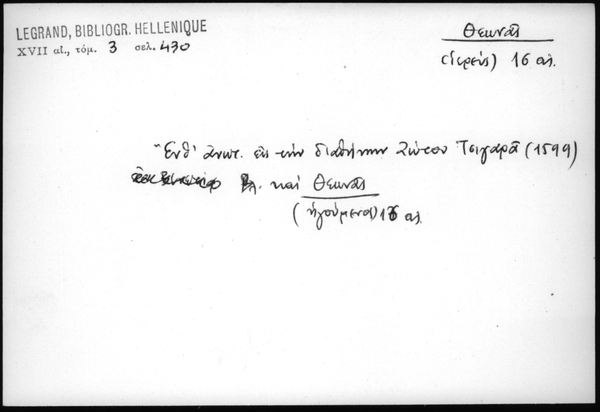 LEGRAND, BIBLIOGR. HELLENIQUE
XVII αἰ., τόμ. 3 σελ. 430
Θεωνᾶς
(ἱερεύς) 16 αἰ.
"Ἐνθ' ἀνωτ. εἰς τὴν διαθήκην Ζώτου Τσιγαρᾶ (1599)
Βλ. καὶ Θεωνᾶς
(ἡγούμενος) 16 αἰ.